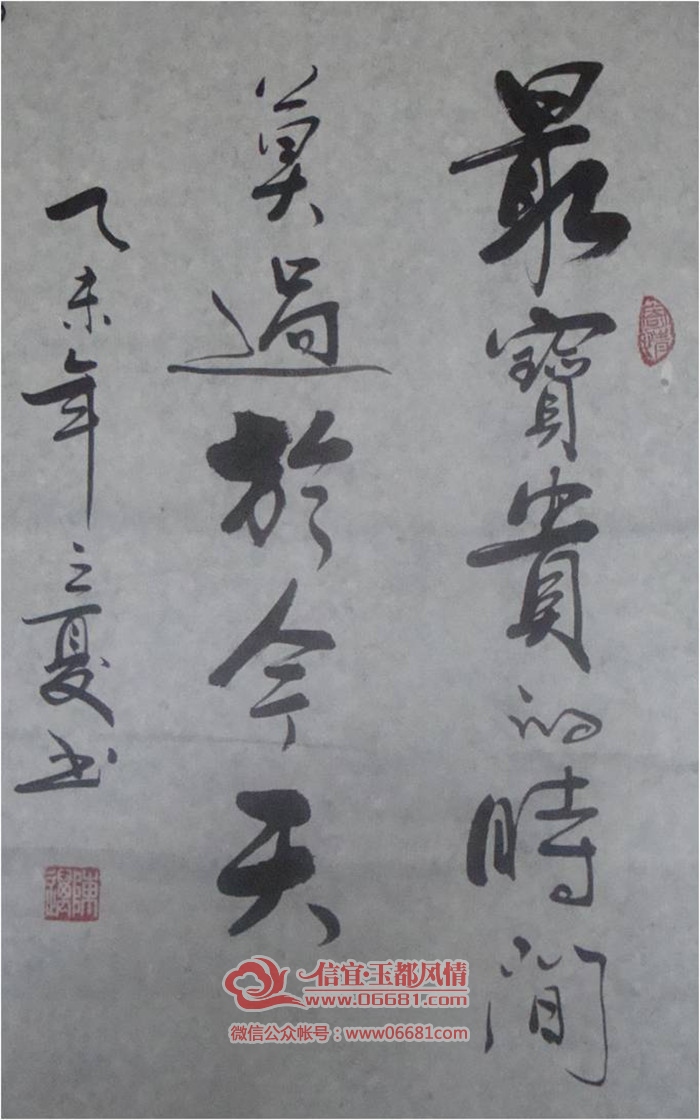 最寶貴的時間
莫過於今天
乙未年之夏书
信宜·玉都风情
www.06681.com
微信公众帐号：www06681com